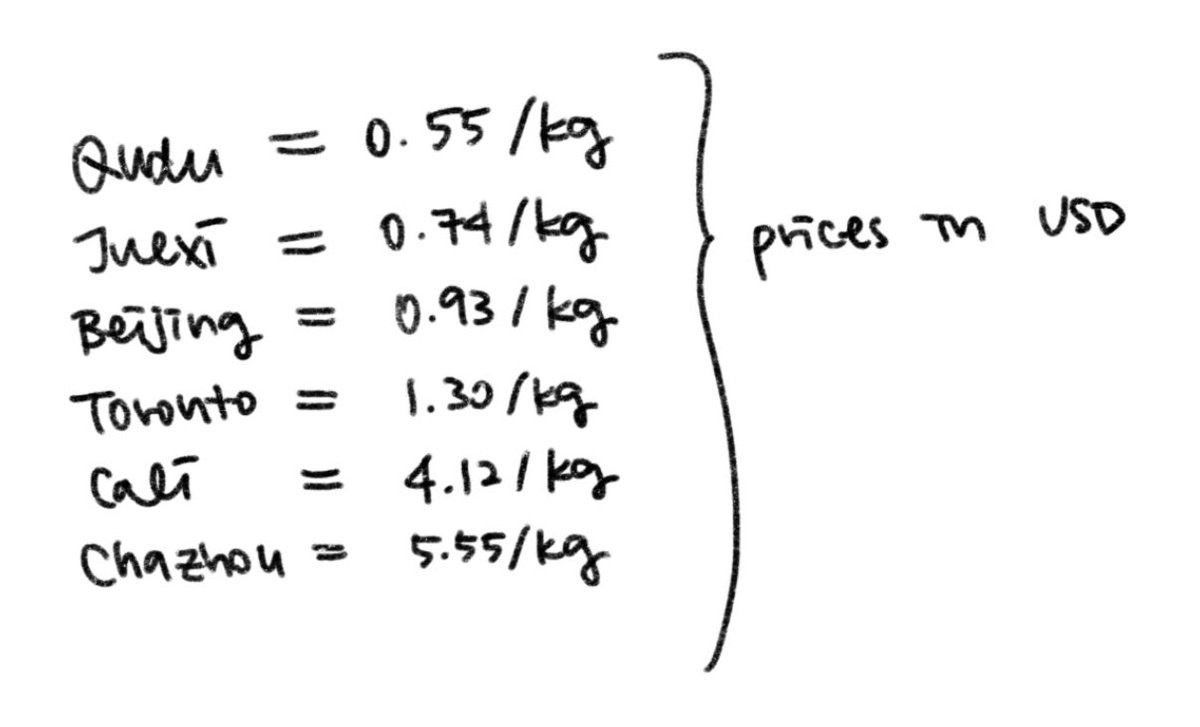 Qudu = 0.55/kg
Juexi = 0.74/kg
Beijing = 0.93/kg
Toronto = 1.30/kg
Cali = 4.12/kg
Chazhou = 5.55/kg
prices in USD